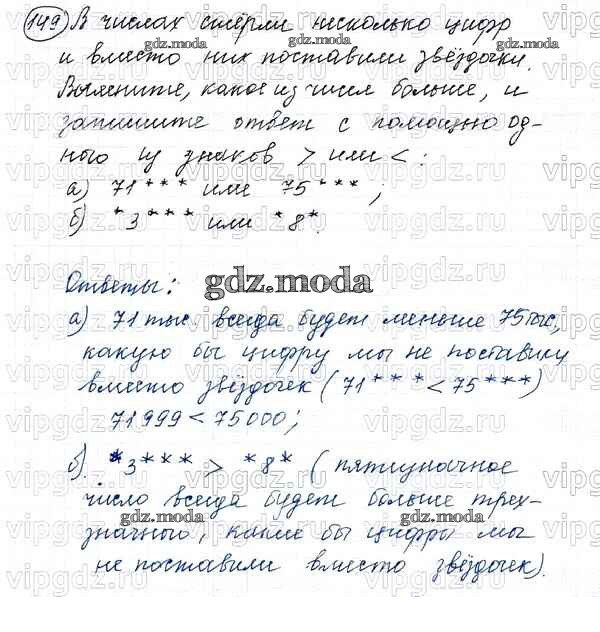 149) В числах стёрли несколько цифр
и вместо них поставили звёздочки.
Выясните, какое из чисел больше, и
запишите ответ с помощью од-
ного из знаков > или < :
а) 71*** или 75***;
б) *3*** или *8*.
Ответы:
gdz.moda
а) 71 тыс. всегда будет меньше 75 тыс,
какую бы цифру мы не поставили
вместо звёздочек (71*** < 75***)
71999 < 75000;
б). *3*** > *8* (пятизначное
число всегда будет больше трех-
значного, какие бы цифры мы
не поставили вместо звёздочек).